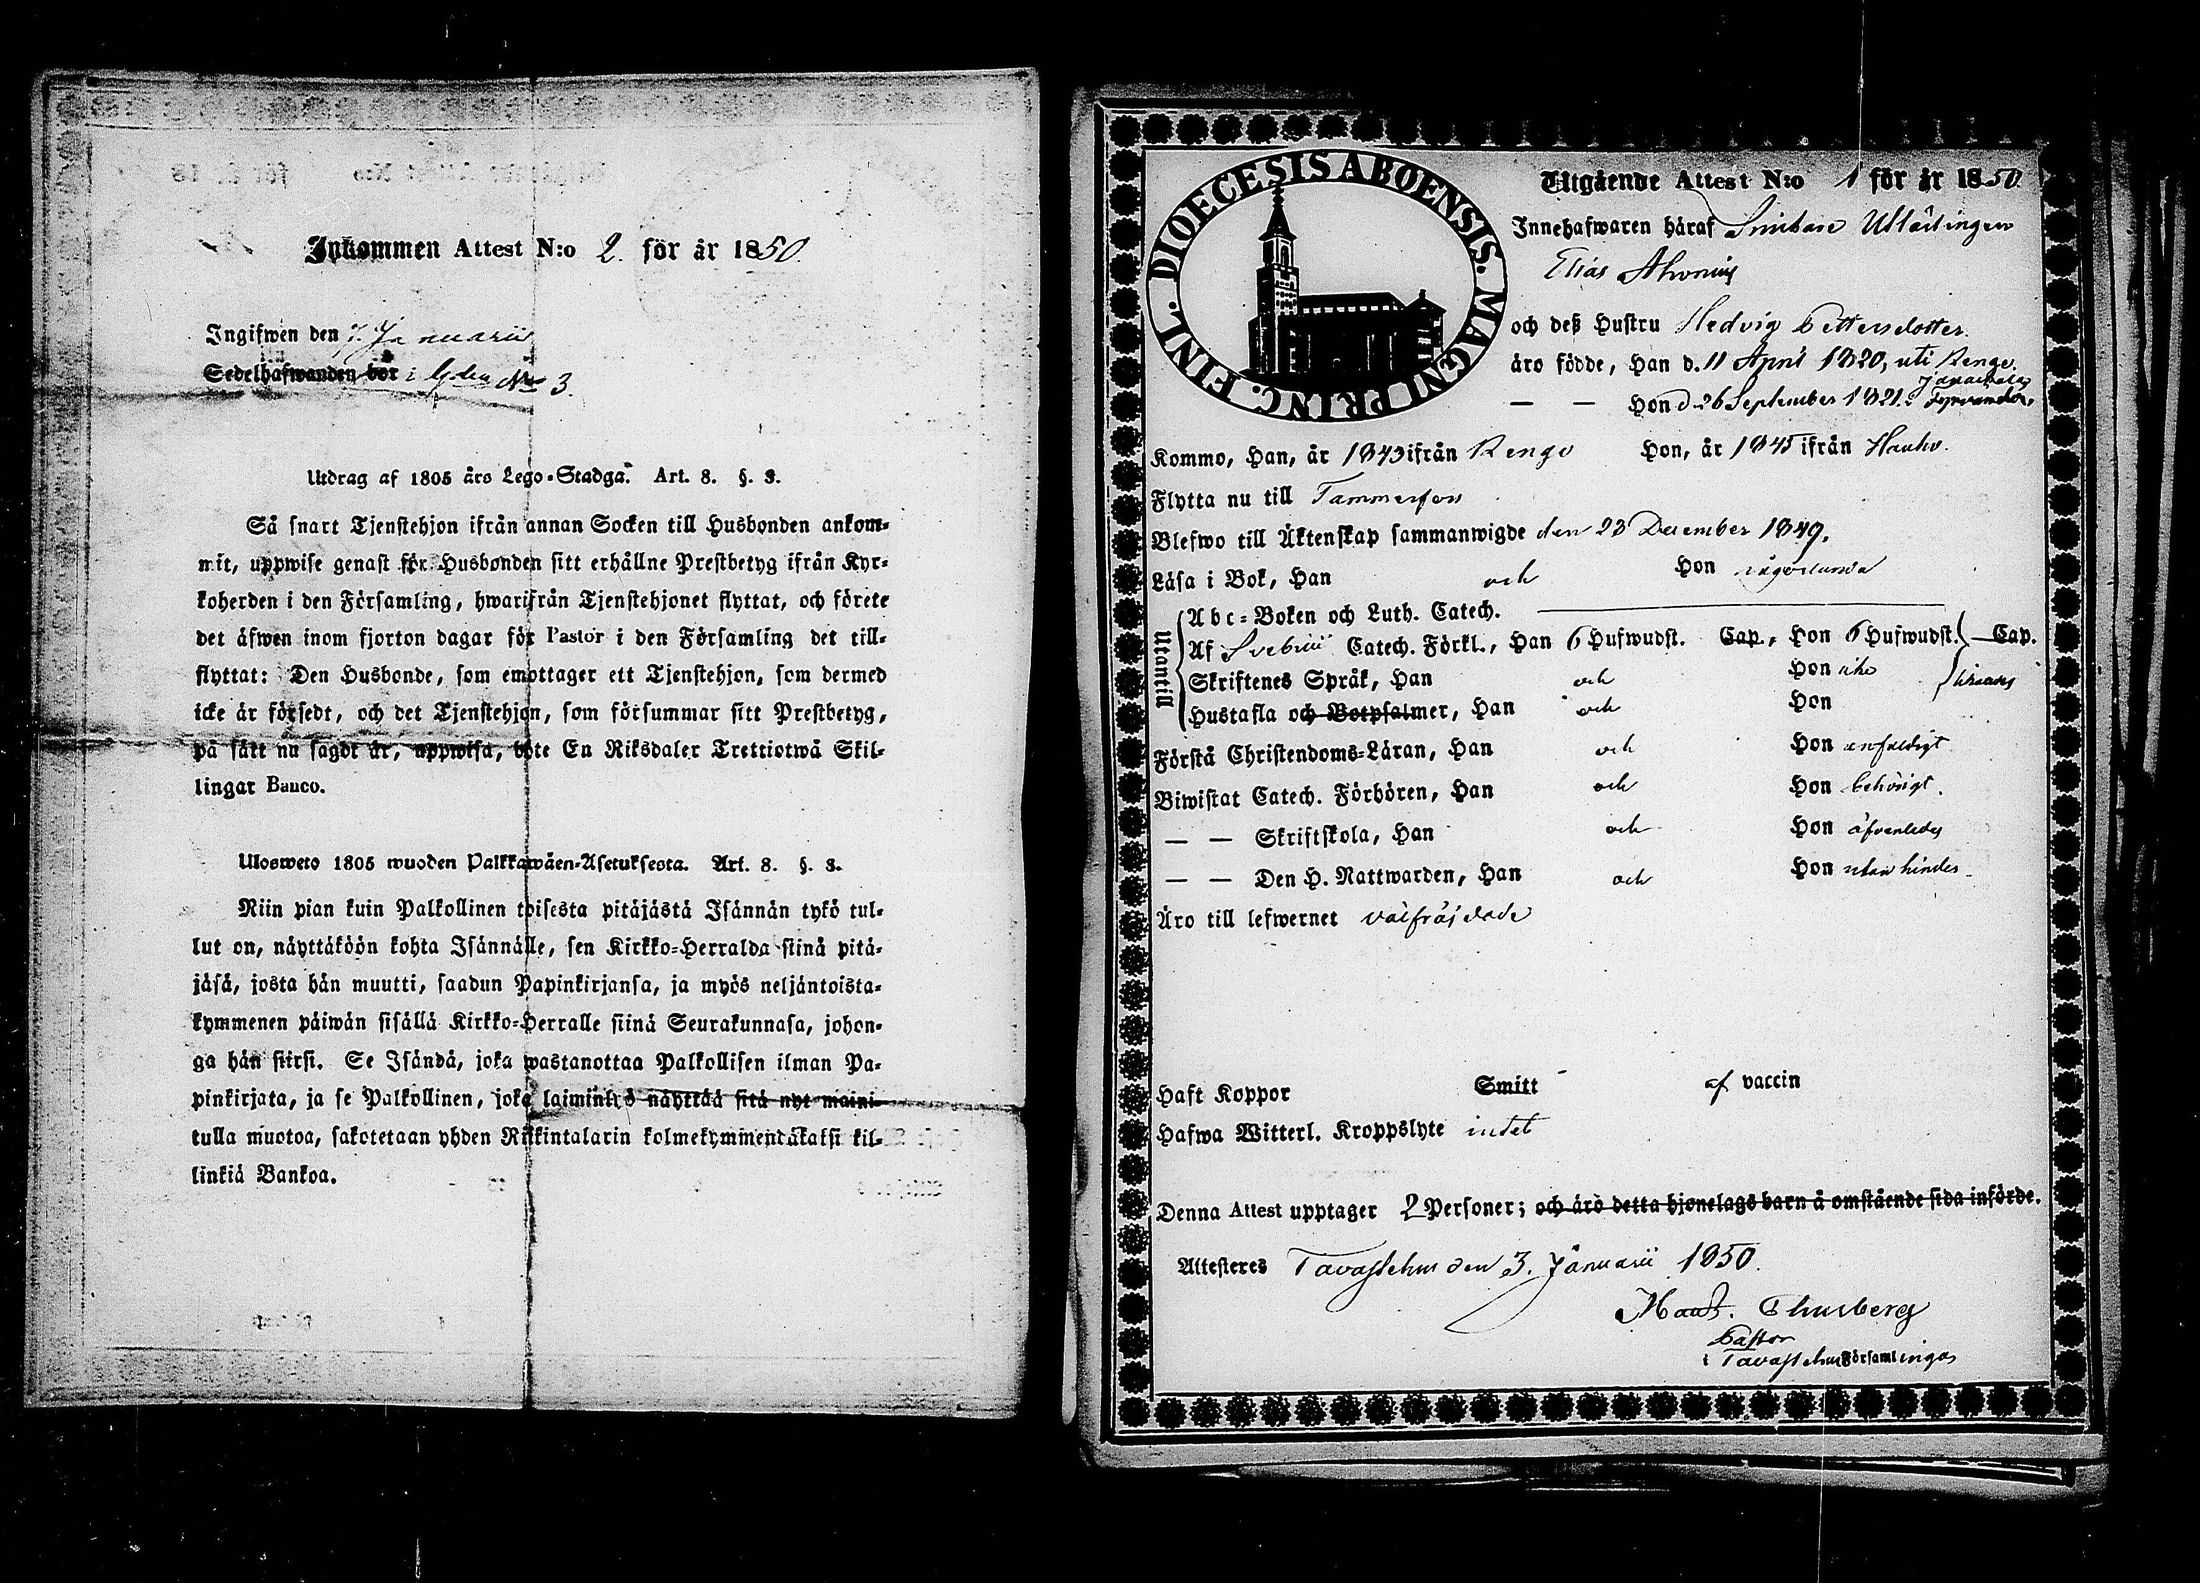 Inkommen Attest N:o 2. för år 1850.
Ingifwen den 7. Januarii
Sedelhafwanden bor i No 3.
Utdrag af 1805 års Lego-Stadga. Art. 8. §. 3.
Så snart Tjenstehjon ifrån annan Socken till Husbonden ankom-
mit, uppwise genast för Husbonden sitt erhållne Prestbetyg ifrån Kyr-
koherden i den Församling, hwarifrån Tjenstehjonet flyttat, och förete
det äfwen inom fjorton dagar för Pastor i den Församling det till-
flyttat: Den Husbonde, som emottager ett Tjenstehjon, som dermed
icke är försedt, och det Tjenstehjon, som försummar sitt Prestbetyg,
på sätt nu sagdt är, uppwisa, böte En Riksdaler Trettiotwå Skil-
lingar Banco.
Ulosweto 1805 wuoden Palkkawäen-Asetuksesta. Art. 8. §. 3.
Niin pian kuin Palkollinen toisesta pitäjästä Isännän tykö tul-
lut on, näyttäköön kohta Isännälle, sen Kirkko-Herralda siinä pitä-
jäsä, josta hän muutti, saadun Papinkirjansa, ja myös neljäntoista-
kymmenen päiwän sisällä Kirkko-Herralle siinä Seurakunnasa, johon-
ga hän siirsi. Se Isändä, joka wastanottaa Palkollisen ilman Pa-
pinkirjata, ja se Palkollinen, joka laiminlyö näyttää sitä nyt maini-
tulla muotoa, sakotetaan yhden Riikintalarin kolmekymmendäkaksi kil-
linkiä Bankoa.
DIOECESIS ABOENSIS. MAGNI PRINC. FINL.
Utgående Attest N:o 1 för år 1850.
Innehafwaren häraf Smitare Utlärlingen
Elias
och deß Hustru Hedvig Pettersdotter.
äro födde, Han d. 11 April 1820, uti Rengo.
— — Hon d. 26 September 1821.
Kommo, Han, år 1843 ifrån Rengo Hon, år 1845 ifrån Hauho.
Flytta nu till Tammerfors
Blefwo till Äktenskap sammanwigde den 23 December 1849.
Läsa i Bok, Han och Hon någorlunda
Utantill
Abc-Boken och Luth. Catech.
Af Svebilii Catech. Förkl., Han 6 Hufwudst. Cap., Hon 6 Hufwudst. Cap.
Skriftenes Språk, Han och Hon icke
Hustafla och Botpsalmer, Han och Hon
Förstå Christendoms-Läran, Han och Hon enfaldigt
Biwistat Catech. Förhören, Han och Hon behörigt.
— — Skriftskola, Han och Hon äfvenledes
— — Den H. Nattwarden, Han och Hon utan hinder.
Äro till lefwernet välfräjdade
Haft Koppor Smitt af vaccin
Hafwa Witterl. Kroppslyte intet
Denna Attest upptager 2 Personer; och äro detta hjonelags barn å omstående sida införde.
Attesteres Tavastehus den 3. Januarii 1850.
Thusberg
Pastor
i Tavastehus Församlingar